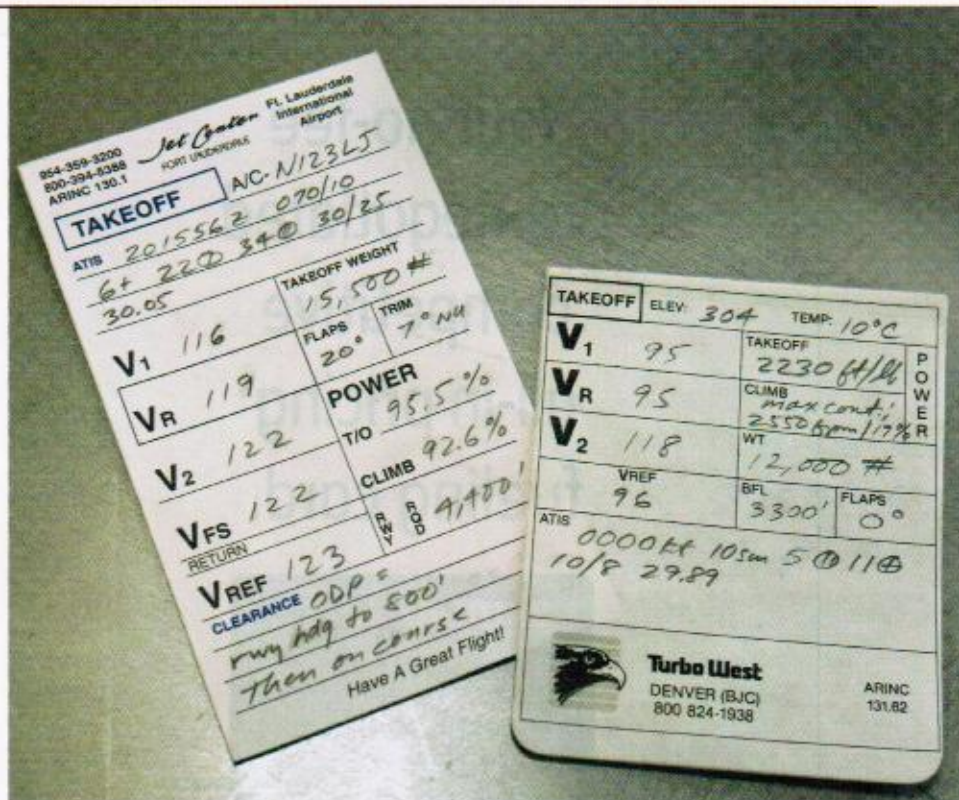 954-359-3200
800-394-8388
ARINC 130.1
Jet Center
FORT LAUDERDALE
Ft. Lauderdale
International
Airport
TAKEOFF A/C- N123LJ
ATIS 201556Z 070/10
6+ 22⦶ 34⦶ 30/25
30.05
TAKEOFF WEIGHT
15,500 #
V1 116
FLAPS 20°
TRIM 7° NU
VR 119
POWER
T/O 95.5%
V2 122
CLIMB 92.6%
VFS 122
RWY RQD 4,400'
RETURN
VREF 123
CLEARANCE ODP =
rwy hdg to 800'
then on course
Have A Great Flight!
TAKEOFF ELEV: 304 TEMP: 10°C
V1 95
TAKEOFF
2230 ft/lb
POWER
VR 95
CLIMB
max cont.;
2550 fpm/17%
V2 118
WT
12,000 #
VREF
96
BFL
3300'
FLAPS
0°
ATIS
00000kt 10sm 5⦶ 11⊕
10/8 29.89
Turbo West
DENVER (BJC)
800 824-1938
ARINC
131.82